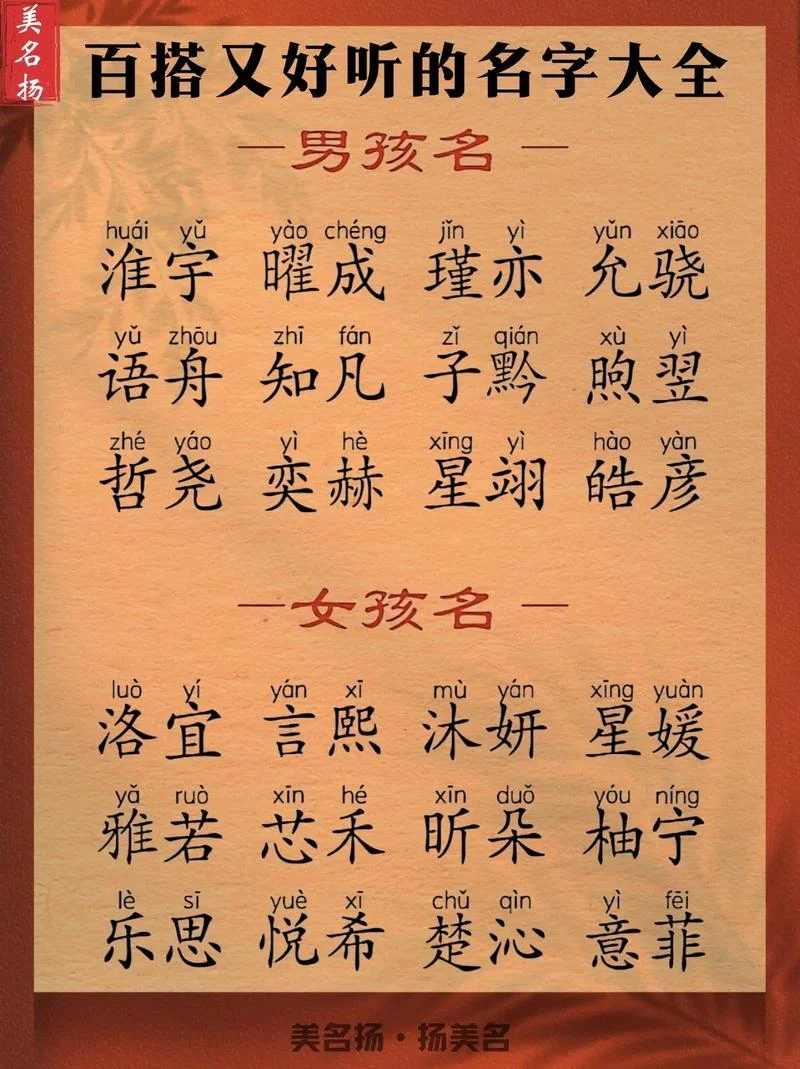 美名扬
百搭又好听的名字大全
男孩名
huái yǔ yào chéng jǐn yì yǔn xiāo
淮宇 曜成 瑾亦 允骁
yǔ zhōu zhī fán zǐ qián xù yì
语舟 知凡 子黔 煦翌
zhé yáo yì hè xīng yì hào yàn
哲尧 奕赫 星翊 皓彦
女孩名
luò yí yán xī mù yán xīng yuàn
洛宜 言熙 沐妍 星媛
yǎ ruò xīn hé xīn duǒ yóu níng
雅若 芯禾 昕朵 柚宁
lè sī yuè xī chǔ qìn yì fēi
乐思 悦希 楚沁 意菲
美名扬·扬美名